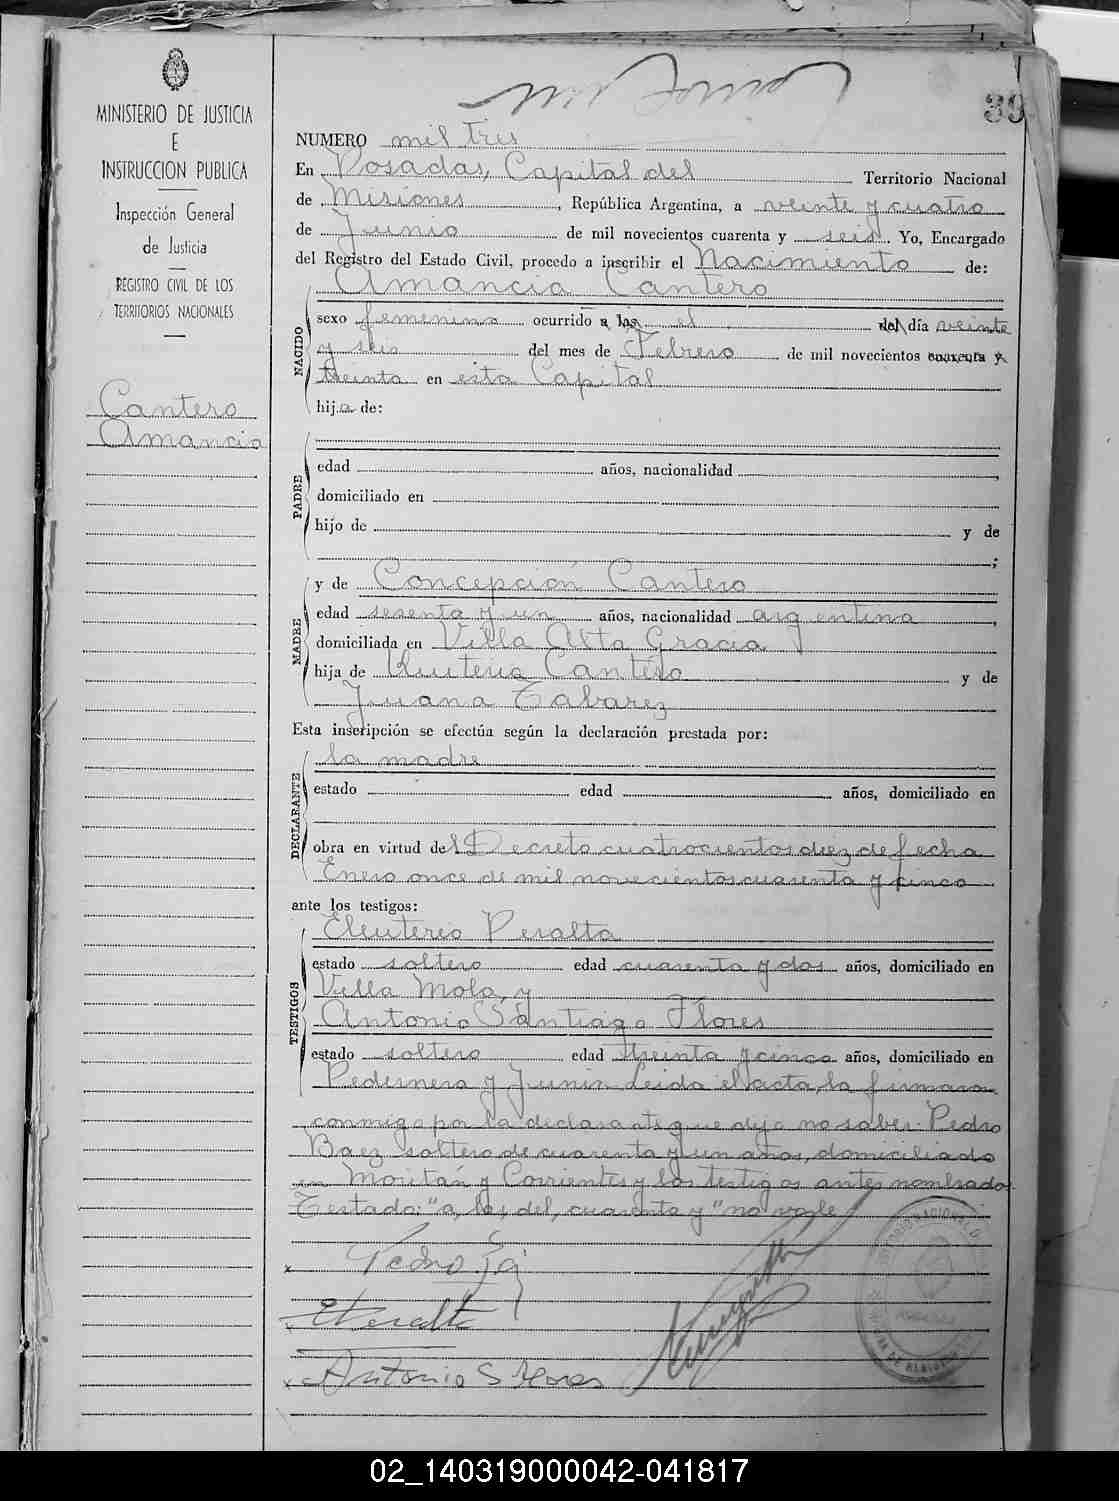 39
MINISTERIO DE JUSTICIA
E
INSTRUCCION PUBLICA
Inspección General
de Justicia
REGISTRO CIVIL DE LOS
TERRITORIOS NACIONALES
Cantero
Amancia
NUMERO mil tres
En Posadas, Capital del Territorio Nacional
de Misiones, República Argentina, a veinte y cuatro
de Junio de mil novecientos cuarenta y seis. Yo, Encargado
del Registro del Estado Civil, procedo a inscribir el Nacimiento de:
NACIDO
Amancia Cantero
sexo femenino ocurrido a las el del día veinte
y seis del mes de Febrero de mil novecientos cuarenta y
treinta en esta Capital
hija de:
PADRE
edad años, nacionalidad
domiciliado en
hijo de y de
;
MADRE
y de Concepción Cantero
edad sesenta y un años, nacionalidad argentina
domiciliada en Villa Alta Gracia
hija de Cantero y de
Juana Tabarez
Esta inscripción se efectúa según la declaración prestada por:
DECLARANTE
la madre
estado edad años, domiciliado en
obra en virtud del Decreto cuatrocientos diez de fecha
Enero once de mil novecientos cuarenta y cinco
ante los testigos:
TESTIGOS
Eleuterio Peralta
estado soltero edad cuarenta y dos años, domiciliado en
Villa Mola, y
Antonio Santiago Flores
estado soltero edad treinta y cinco años, domiciliado en
Pedernera y Junin. Leida el acta, la firmara
conmigo por la declarante que dijo no saber. Pedro
Baez soltero de cuarenta y un años, domiciliado
en y Corrientes y los testigos antes nombrados.
Testado: "a, las, del, cuarenta y" no vale
Pedro
EPeralta
Antonio S Flores
02_140319000042-041817